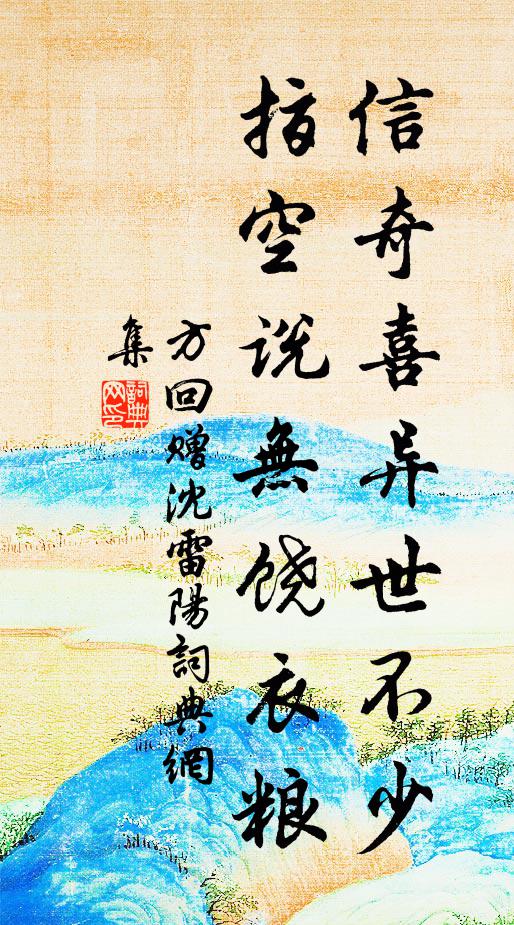 信奇喜异世不少
指空说無饶衣粮
方回赠沈雷陽詞典網
集
詞典網印